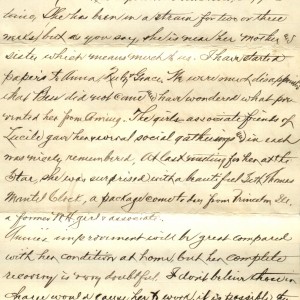 time, She has been in a strain for two or three
weeks, but as you say, she is near her Mother &
sister which means much to us. I have started
papers to Anna, Grace. We were much disappointed
that did not come & have wondered what pre
vented her from coming. The girls associate friends of
Lucile gave her several social gatherings & in each
was nicely remembered. At last meeting for her at the
Star, she was surprised with a beautiful Seth Thomas
Mantel Clock, a package came to day from Princeton Ill.
a former N. H. girl & associate.
improvement will be great compared
with her condition at home, but her complete
recovery is very doubtful. I don't believe there
would cause her to work it is possible to